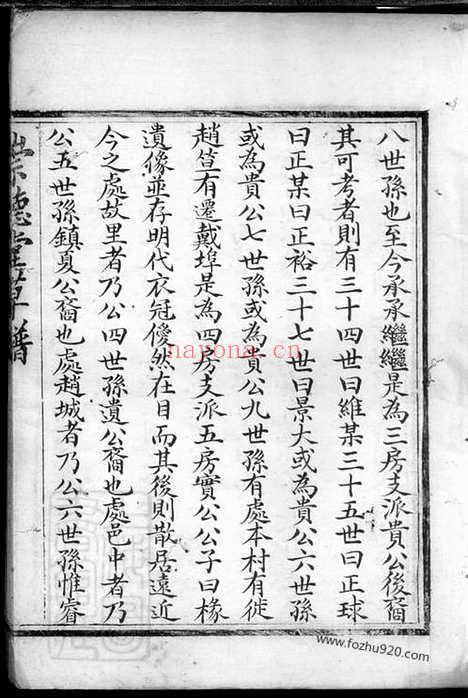 八世孫也至今承承繼繼是為三房支派貴公後裔
其可考者則有三十四世曰維某三十五世曰正球
曰正某曰正裕三十七世曰景大或為貴公六世孫
或為貴公七世孫或為貴公九世孫有處本村有徙
趙笪有遷戴埠是為四房支派五房實公公子曰椽
遺像並存明代衣冠儼然在目而其後則散居遠近
今之處故里者乃公四世孫遺公裔也處邑中者乃
公五世孫鎮夏公裔也處趙城者乃公六世孫惟睿
崇德堂草譜
nayona.cn
www.fozhu920.com